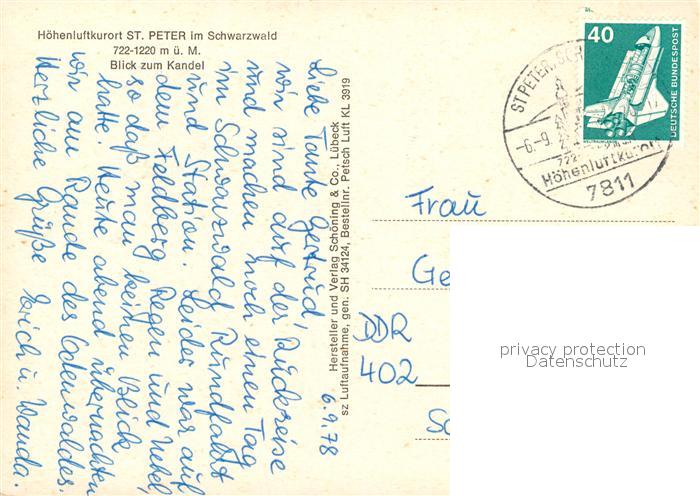 Höhenluftkurort ST. PETER im Schwarzwald
722-1220 m ü. M.
Blick zum Kandel
6.9.78
Liebe Tante Gertrud!
wir sind auf der Rückreise
und machen noch einen Tag
im Schwarzwald Rundfahrt
und Station. Leider war auf
dem Feldberg Regen und Nebel,
so daß man keinen Blick
hatte. Heute abend übernachten
wir am Rande des Odenwaldes.
Herzliche Grüße Erich u. Wanda.
Hersteller und Verlag Schöning & Co., Lübeck
sz Luftaufnahme, gen. SH 34124, Bestellnr. Petsch Luft KL 3919
40
DEUTSCHE BUNDESPOST
ST PETER, SCH
-6.-9.
722-
Höhenluftkurort
7811
Frau
Ge
DDR
402
privacy protection
Datenschutz